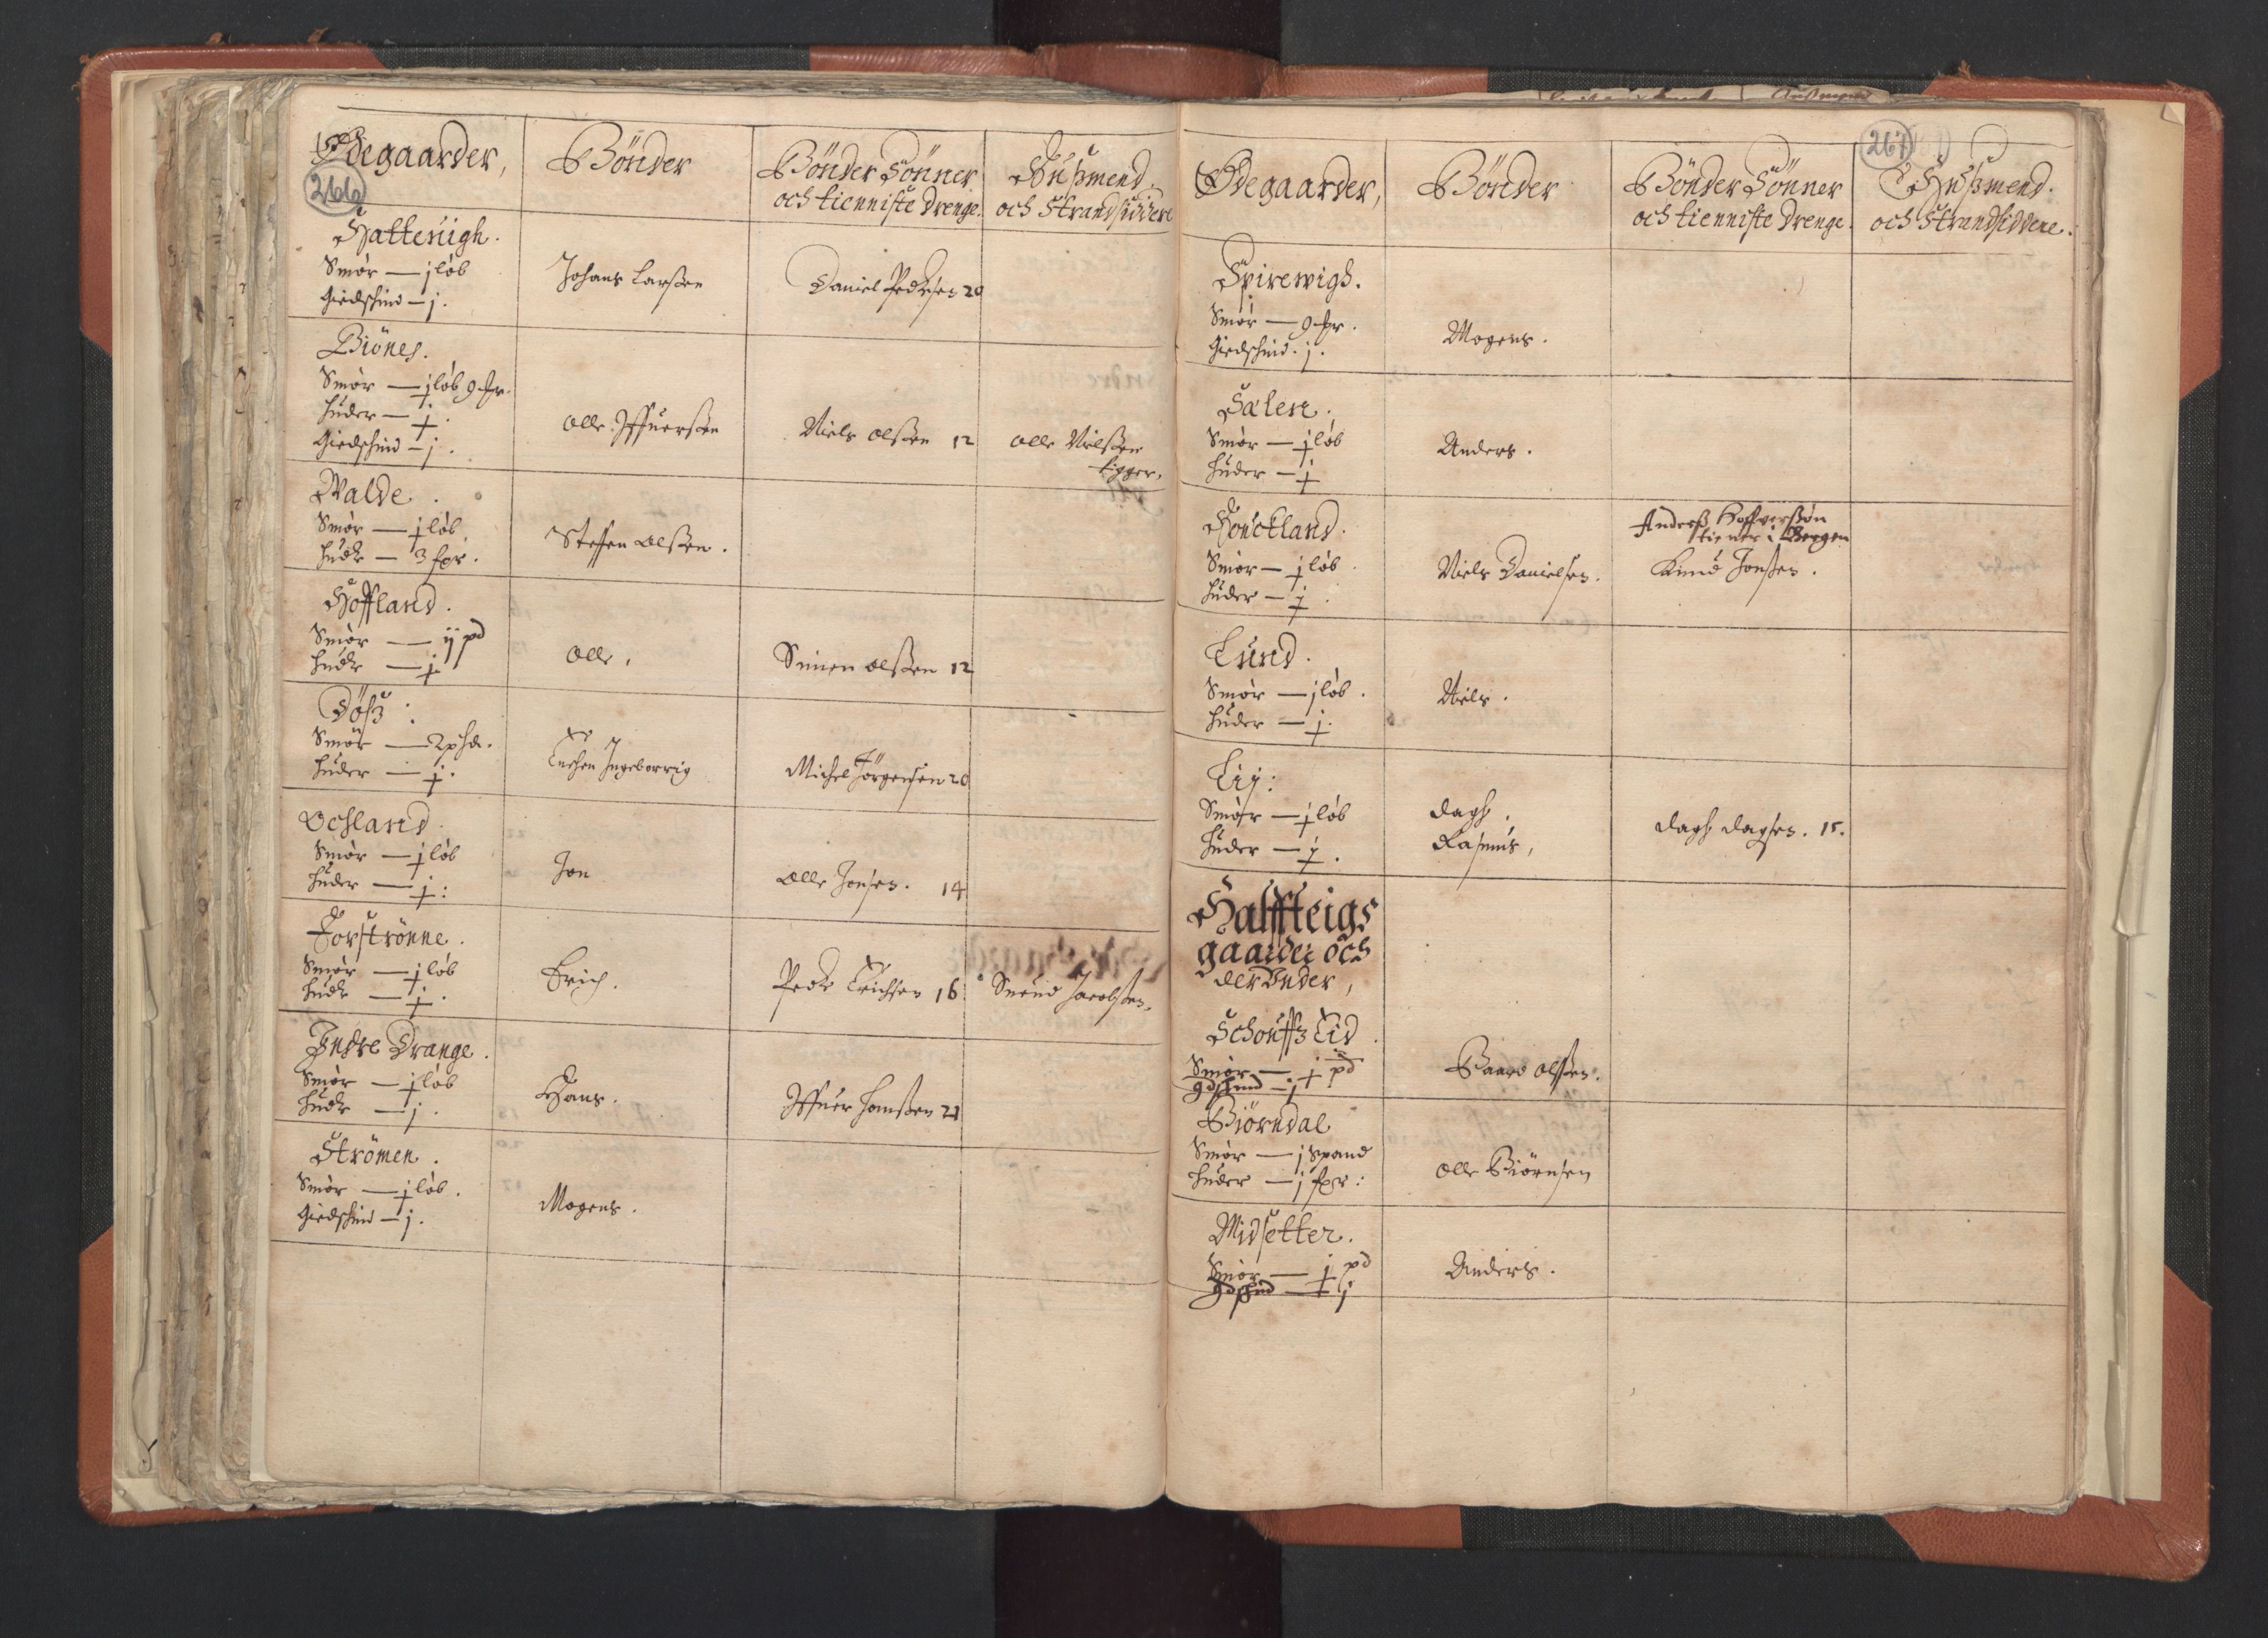 Ødegaarder,
Bönder
Bönder Sönner
och tienniste Drenge.
Husmend
och Strandsiddere
266
Hattenigh.
Smör — j löb
Giedschind — j.
Johans Larßen
Daniel Pedersen 20
Biönes.
Smör — j löb 9 mr.
Huder — j.
Giedschind — j.
Olle Iffuerßen
Niels Olßen 12
Olle Nielßen
ligger,
Walde.
Smör — j löb
Huder — 3 fpr.
Steffen Olßen.
Hoffland.
Smör — ij pd
Huder — j
Olle,
Simen Olßen 12
Döß:
Smör — 2 pd.
Huder — j.
Encken Ingeborrig
Michel Jörgensen 20
Ochland
Smör — j löb
Huder — j:
Jon
Olle Jonsen. 14
Forströnne.
Smör — j löb
Huder — j.
Erich.
Peder Erichsen 16
Suend Jacobßen.
Indre Drange.
Smör — j löb
Huder — j.
Hans.
Iffuer Hanßen 21
Strömen.
Smör — j löb.
Giedschind — j.
Mogens.
267
Ødegaarder,
Bönder
Bönder Sönner
och tienniste Drenge.
Husmend.
och Strandsiddere.
Spirewigh.
Smör — 9 mr.
Giedschind. j.
Mogens.
Salen.
Smör — j löb
Huder — j
Anders.
Houckland.
Smör — j löb
Huder — j.
Niels Danielsen.
Anderß Hoffverßøn
tienner i Bergen
Knud Jonßen.
Lund.
Smör — j löb.
Huder — j.
Niels.
Lij:
Smör — j löb
Huder — j.
Dagh.
Rasmus,
Dagh Dagsen. 15.
Halffteigs
gaarder och
der Under,
Schouffz Eid
Smör — j pd
gdskind — j
Baard Olßen.
Biörndal
Smör — j Spand
Huder — j fpr:
Olle Biörnsen
Midsetter.
Smör — j pd
gdskind — j
Anders.